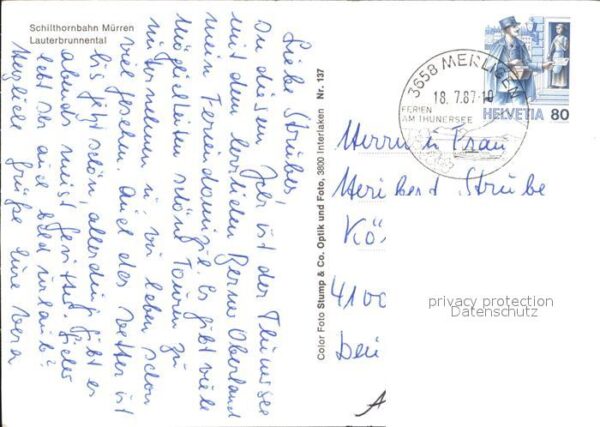 Schilthornbahn Mürren
Lauterbrunnental
Liebe Strübes!
In diesem Jahr ist der Thunersee
mit dem herrlichen Berner Oberland
mein Feriendomizil. Es gibt viele
Möglichkeiten schöne Touren zu
unternehmen u. wir haben schon
viel gesehen. Auch das Wetter ist
bis jetzt schön allerdings gibt es
abends meist Gewitter.
lebt ihr auch bald Urlaub?
Herzliche Grüße Eure Vera
Color Foto Stump & Co. Optik und Foto, 3800 Interlaken Nr. 137
3658 MERLIGEN
18.7.87-10
FERIEN
AM THUNERSEE
HELVETIA 80
Herrn u. Frau
Heribert Strübe
Kö
4100
privacy protection
Datenschutz